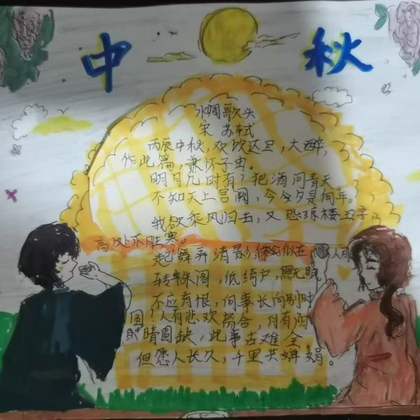 中秋
水调歌头
宋 苏轼
丙辰中秋,欢饮达旦,大醉,
作此篇,兼怀子由。
明月几时有?把酒问青天
不知天上宫阙,今夕是何年。
我欲乘风归去,又恐琼楼玉宇
高处不胜寒。
起舞弄清影何似在人间
转朱阁,低绮户,照无眠
不应有恨,何事长向别时
圆?人有悲欢离合,月有阴
晴圆缺,此事古难全
但愿人长久,千里共婵娟。